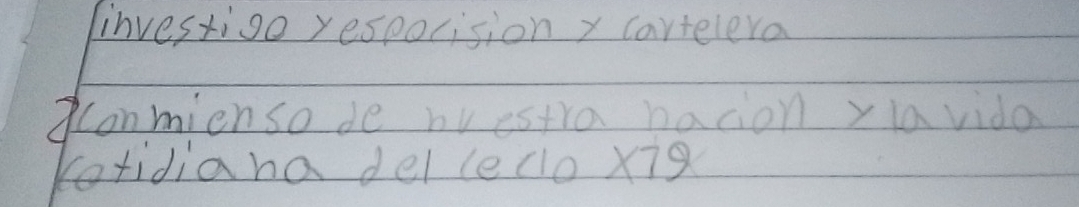 investigo y espocision y cartelera
2 conmienso de nuestra nacion y la vida
cotidiana del ceclo X79